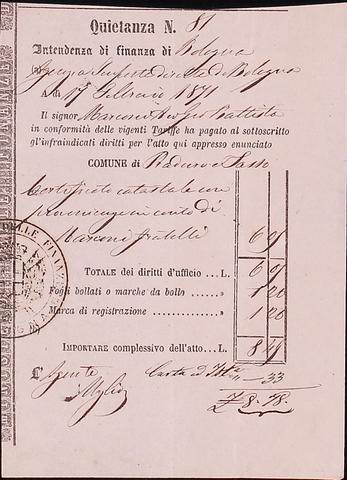 Quietanza N. 81
Intendenza di finanza di Bologna
Bologna
A dì 17 Febbraio 1871
Il signor Marconi Battista
in conformità delle vigenti Tariffe ha pagato al sottoscritto
gl'infraindicati diritti per l'atto qui appresso enunciato
COMUNE di Praduro e Sasso
Certificato catastale con
provenienze in conto di
Marconi fratelli 6 09
TOTALE dei diritti d'ufficio ... L. 6 09
Fogli bollati o marche da bollo ..... » 1 20
Marca di registrazione ..... » 1 20
IMPORTARE complessivo dell'atto... L. 8 49
L'Agente Carta 33
DELLE FINANZE